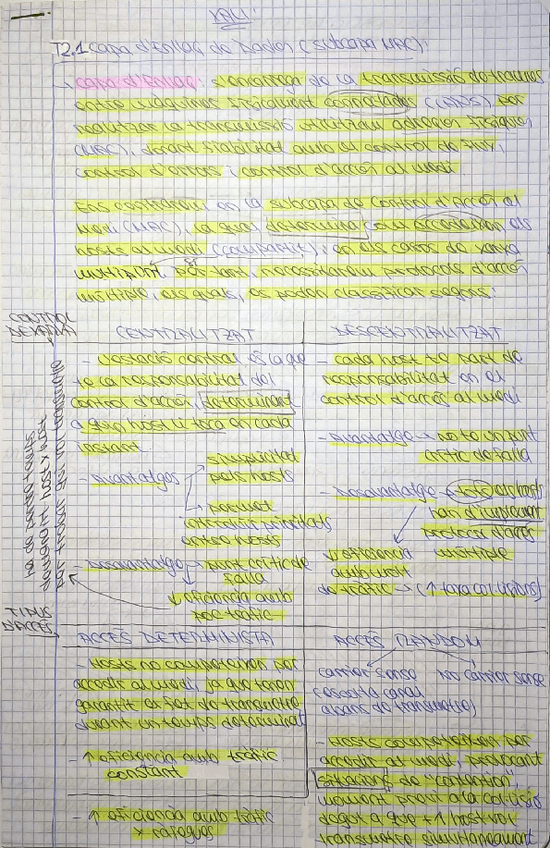 XALI:
T2.1 Capa d'Enllaç de Dades (subcapa MAC):
Capa d'Enllaç: s'encarrega de la transmissió de trames
entre màquines físicament connectades (LANs), per
realitzar la transmissió utilitzen adreces físiques
(MAC), donant fiabilitat amb el control de flux,
control d'errors i control d'accés al medi.
Ens centrarem en la subcapa de Control d'Accés al
Medi (MAC), la qual determina com accedeixen els
hosts al medi (compartit); en els casos de xarxa
multipunt, per tant, necessitarem protocols d'accés
múltiple, els quals, es poden classificar segons:
CONTROL
DE XARXA
CENTRALITZAT
- L'estació control és la que
té la responsabilitat del
control d'accés, determinant
a quin host li toca en cada
instant
- Avantatges → simplicitat
pels hosts
→ permet
prioritats
entre hosts
- Desavantatge → punt crític de
falla
↓ eficiència amb
poc tràfic
ha de
host x host
per trobar qui vol transmetre
DESCENTRALITZAT
- cada host té part de
responsabilitat en el
control d'accés al medi
- Avantatge → no té un punt
crític de falla
- Desavantatge → tots els hosts
han d'implement
protocol d'accés
múltiple
↓ eficiència
amb molt
de tràfic → (↑ taxa col·lisions)
TIPUS
D'ACCÉS
ACCÉS DETERMINISTA
- Hosts no competeixen per
accedir al medi, ja que tenen
garantit el fet de transmetre
durant un temps determinat
- ↑ eficiència amb tràfic
constant
- ↑ eficiència amb tràfic
x ràfegues
ACCÉS RANDOM
carrier sense No carrier sense
(escolta canal
abans de transmetre)
- Hosts competeixen per
accedir al medi, provocant
situacions de "contenció",
moment previ a la col·lisió
degut a que +1 host vol
transmetre simultàneament